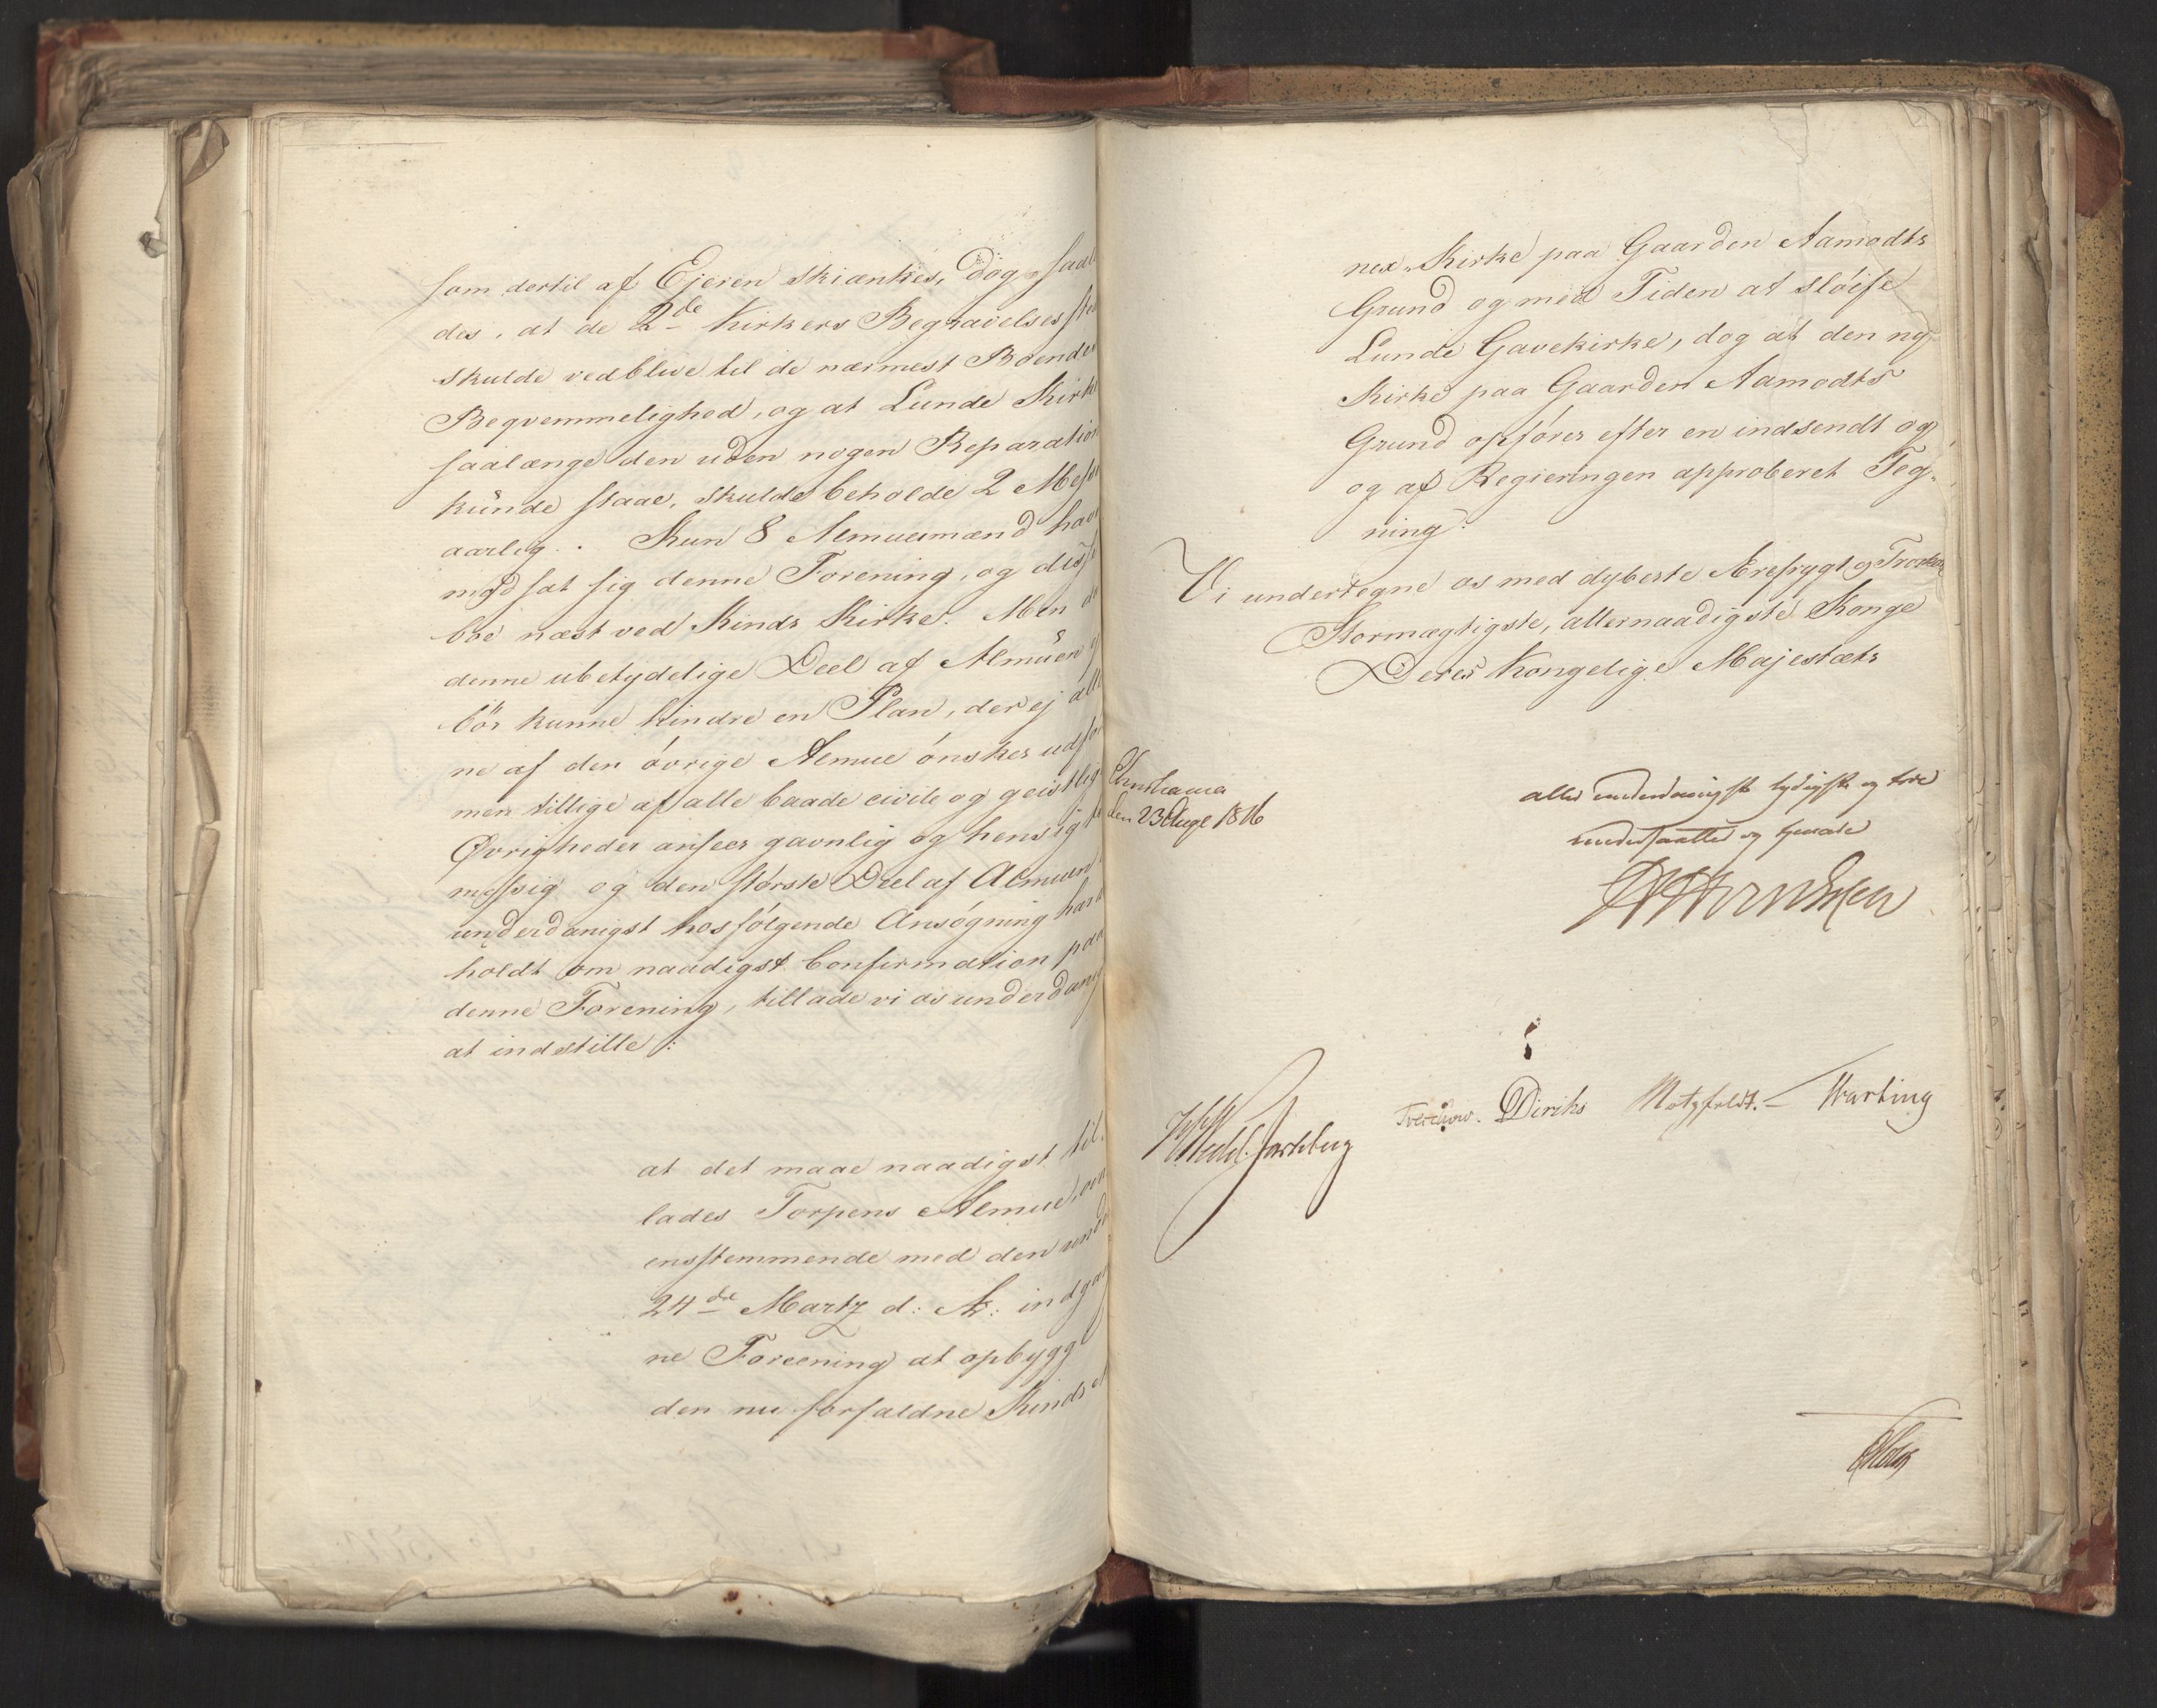 som dertil af Ejeren skiænkes, dog saale
des, at de 2de Kirkers Begravelses ste
skulde vedblive til de nærmest Boendes
Beqvemmelighed, og at Lunde Kirke
saalænge den uden nogen Reparation
kunde staae, skulde beholde 2 Messer
aarlig. Kun 8 Almuesmænd have
modsat sig denne Forening, og disse
boe næst ved Kinds Kirke. Men da
denne ubetydelige Deel af Almuen ej
bör kunne hindre en Plan, der ej alle
ne af den övrige Almue önskes udför
men tillige af alle baade civile og geistlige
Øvrigheder ansees gavnlig og hensigts
mæssig og den störste Deel af Almuen i
underdanigst hosfölgende Ansögning har
holdt om naadigst Confirmation paa
denne Forening, tillade vi os underdanigst
at indstille:
at det maae naadigst til.
lades Torpens Almue, over
ensstemmende med den under
24de Martz d: A: indgaae
ne Foreening at opbygge
den nu forfaldne Kinds An
nex-Kirke paa Gaarden Aamodts
Grund og med Tiden at slöife
Lunde Gavekirke, dog at den nye
Kirke paa Gaarden Aamodts
Grund opföres efter en indsendt og
og af Regieringen approberet Teg-
ning.
Vi undertegne os med dybeste Ærefrygt og Troskab
Stormægtigste, allernaadigste Konge
Deres Kongelige Majestæts
Christiania
den 23 Aug 1816
aller underdanigste lydigste og troe
undersaatter og tienere
Wedel Jarlsberg
Diriks Motzfeldt. - Krog